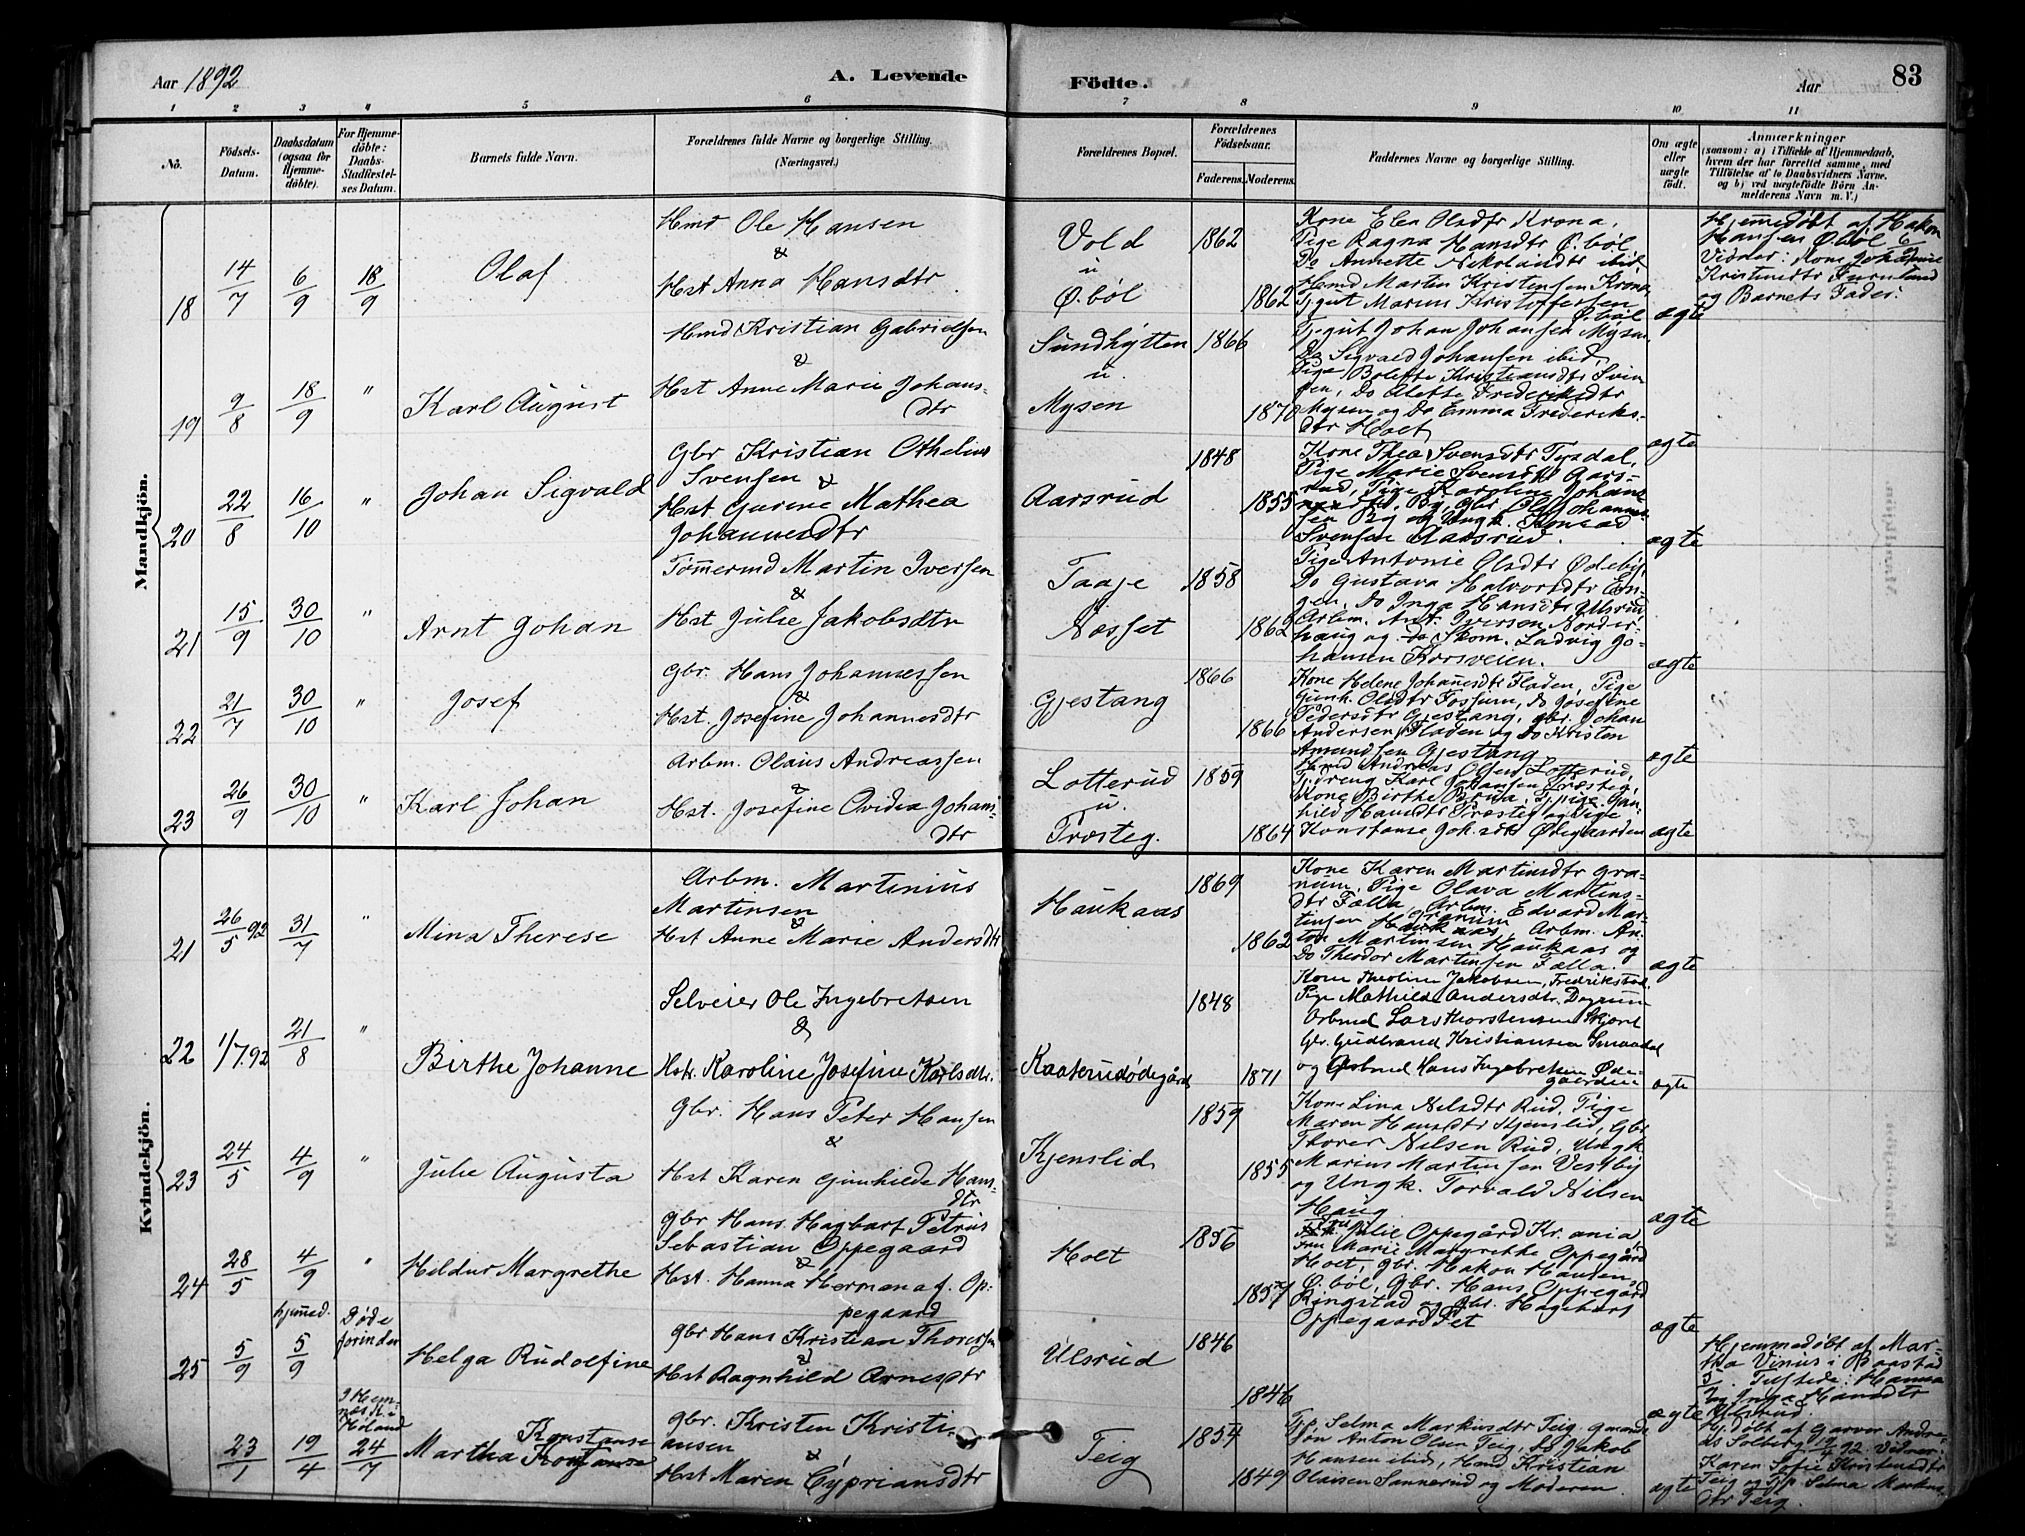 Aar 1892
A. Levende
Födte.
Aar
83
1 2 3 4 5 6 7 8 9 10 11
No.
Födsels-Datum.
Daabsdatum (ogsaa for Hjemmedöbte).
For Hjemmedöbte: Daabs-Stadfæstelses Datum.
Barnets fulde Navn.
Forældrenes fulde Navne og borgerlige Stilling. (Næringsvei.)
Forældrenes Bopæl.
Forældrenes Födselsaar.
Faderens. Moderens.
Faddernes Navne og borgerlige Stilling.
Om ægte eller uægte födt.
Anmærkninger
(saasom: a) i Tilfælde af Hjemmedaab, hvem der har forrettet samme, med Tilföielse af to Daabsvidners Navne. og b) ved uægtefödte Börn Anmelderens Navn m. V.)
Mandkjön.
18 14/7 6/9 18/9 Olaf
Hmd Ole Hansen
&
Hst Anna Hansdtr
Vold
u
Ø. böl
1862
1862
Kone Elen Olsdtr Krona,
Pige Ragna Hansdtr Ø. böl
Do Annette Nikolaidtr ibid
Hmd Martin Kristensen Krona,
Tjgut Marius Kristoffersen
Ø. böl
ægte
Hjemmedöbt af Hakon
Hansen Ø. böl 6/9
Vidner: Kone Johanne
Kristensdtr
og Barnets Fader.
19 9/8 18/9 " Karl August
Hmd Kristian Gabrielsen
&
Hst Anne Marie Johans-
dtr
Sundhytten
u.
Mysen
1866
1870
Tjgut Johan Johansen Mysen
Do Sigvald Johansen ibid,
Pige Bolette Kristiansdtr Svin
gen, Do Alette Frederiksdtr
Mysen og Do Emma Frederiks-
dtr Holt
ægte
20 22/8 16/10 " Johan Sigvald
Gbr Kristian Othelius
Svensen &
Hst Gurine Mathea
Johannesdtr
Aarsrud
1848
1855
Kone Thea Svensdtr Tysdal,
Pige Marie Svensdtr Aars-
rud, Pige Karoline Johans
By, Gbr Ole Johannes-
sen By og Ungk. Konrad
Svensen Aarsrud.
ægte
21 15/9 30/10 " Arnt Johan
Tömmermd Martin Iversen
&
Hst Julie Jakobsdtr
Taaje
Næsset
1858
1862
Pige Antonie Olsdtr Ødeby,
Do Gustava Halvorsdtr En-
gen, Do Inga Hansdtr Ulsrud
Arbm. Ant. Iversen Norder-
haug og Skom. Ludvig Jo-
hansen Korsveien.
ægte
22 21/7 30/10 " Josef
Gbr. Hans Johannessen
&
Hst. Josefine Johannesdtr
Gjestang
1866
1866
Kone Helene Johannesdtr Fladen, Pige
Gunh. Olsdtr Fossum, Do Josefine
Pedersdtr Gjestang, gbr. Johan
Andersen Fladen og Do Kristen
Amundsen Gjestang
ægte
23 26/9 30/10 " Karl Johan
Arbm. Olaus Andreassen
&
Hst. Josefine Ovidia Johans-
dtr
Lotterud
u.
Præsteg.
1859
1864
Hmd Andreas Olsen Lotterud,
Tjdreng Karl Johansen Præsteg,
Kone Birthe Brua, Tjpige Gun-
hild Hansdtr Præsteg og Pige
Konstanse Joh.sdtr Ødegaarden
ægte
Kvindekjön.
21 26/5 92 31/7 " Mina Therese
Arbm. Martinius
Martinsen
&
Hst Anne Marie Andersdtr
Haukaas
1869
1862
Kone Karen Martinsdtr Gra-
num, Pige Olava Martins-
dtr Falla, Arbm. Edvard Mar-
tinsen Granum, Arbm. An-
ton Martinsen Haukaas og
Do Theodor Martinsen Falla.
ægte
22 1/7.92 21/8 " Birthe Johanne
Selveier Ole Ingebretsen
&
Hst. Karoline Josefine Karlsdtr.
Kaaterudødegård
1848
1871
Kone Karoline Jakobsen, Fredrikstad.
Pige Mathilde Andersdtr.
Arbmd Lars Thorstensen
Gbr. Gudbrand Kristiansen Smaadal
og Arbmd Hans Ingebretsen Øde-
gaarden
ægte
23 24/5 4/9 " Julie Augusta
Gbr. Hans Peter Hansen
&
Hst Karen Gunhilde Hans-
dtr
Kjenslid
1859
1855
Kone Lina Nilsdtr Rud, Pige
Maren Hansdtr Kjenslid, Gbr.
Thorer Nilsen Rud, Ungk.
Marius Martinsen Vestby
og Ungk. Torvald Nilsen
Haug
ægte
24 28/5 4/9 " Hildur Margrethe
Gbr Hans Hagbart Petrus
Sebastian Oppegaard
&
Hst. Hanna Hermana f. Op-
pegaard
Holt
1856
1857
Fru Julie Oppegård Kr.ania,
Fru Marie Margrethe Oppegård
Holt, Gbr. Hakon Hansen
Ø. böl, Gbr. Hans Oppegård
Ringstad og Gbr. Hagbart
Oppegaard Fet
ægte
25 5/9 hjemmed. 5/9 Døde forinden Helga Rudolfine
Gbr Hans Kristian Thoresen
&
Hst Ragnhild Arnesdtr
Ulsrud
1846
1846
ægte
Hjemmedöbt af Mar-
tha Vinius i Baastad
5/9. Tilstede: Hanna
og Inga Hansdtr
Ulsrud.
23/1 19/4 I Hem-
næs K. i
Höland
24/7
Martha Konstanse
Gbr. Kristen Kristi-
ansen
&
Hst Maren Cypriansdtr
Teig
1854
1849
Tjp. Selma Markusdtr Teig, Gmands-
søn Anton Olsen Teig, Do Jakob
Hansen ibid, Hmd Kristian
Olausen Sannerud og Moderen.
ægte
Hjdöbt af Garver Andre-
as Solberg 19/4 92. Vidner:
Karen Sofie Kristensdtr
Teig og Tjp Selma Markus-
dtr Teig.